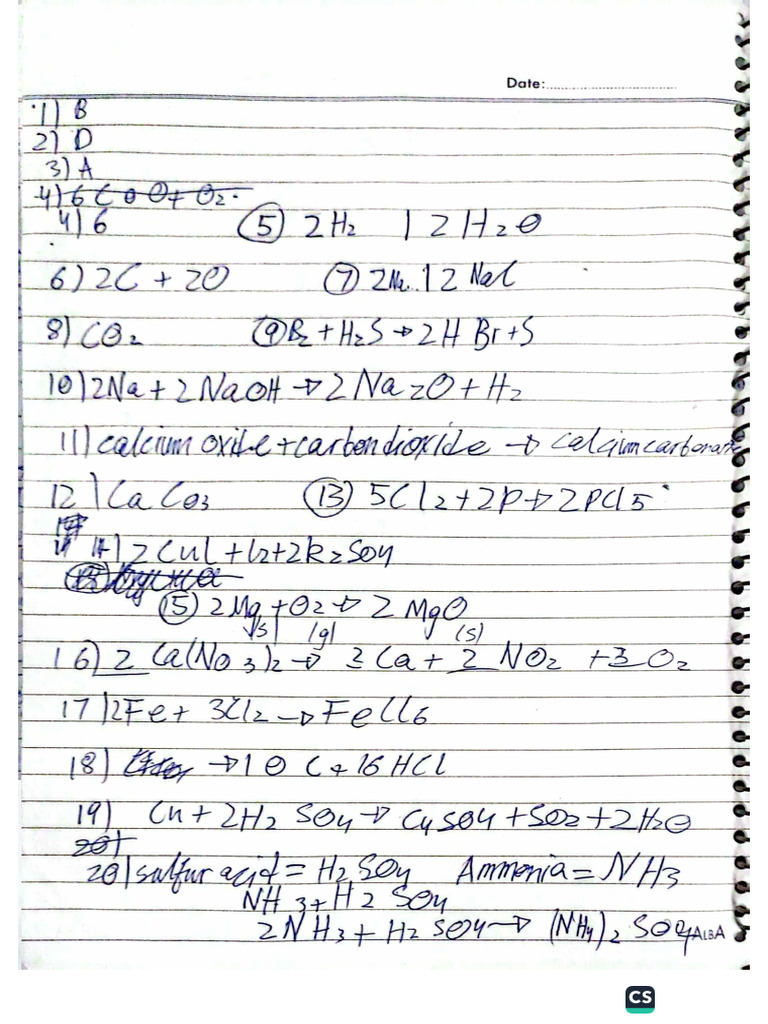 Date:
1) B
2) D
3) A
4) 6 C O O + O2.
4) 6 (5) 2H2 | 2H2O
6) 2C + 2O (7) 2Na. | 2 NaC
8) CO2 (9) B2 + H2S → 2H Br + S
10) 2Na + 2NaOH → 2Na2O + H2
11) calcium oxite + carbon dioxide → calcium carbonate
12) CaCo3 (13) 5Cl2 + 2P → 2PCl5
14) 2CuI + I2 + 2K2SO4
(15) 2Mg + O2 → 2 MgO
(s) (g) (s)
16) 2 Ca(NO3)2 → 2 Ca + 2 NO2 + 3 O2
17) 2Fe + 3Cl2 → FeCl6
18) → 10 C + 16 HCl
19) Cu + 2H2 SO4 → CuSO4 + SO2 + 2H2O
20)
20) sulfur acid = H2SO4 Ammonia = NH3
NH3 + H2 SO4
2NH3 + H2 SO4 → (NH4)2 SO4
ALBA
CS